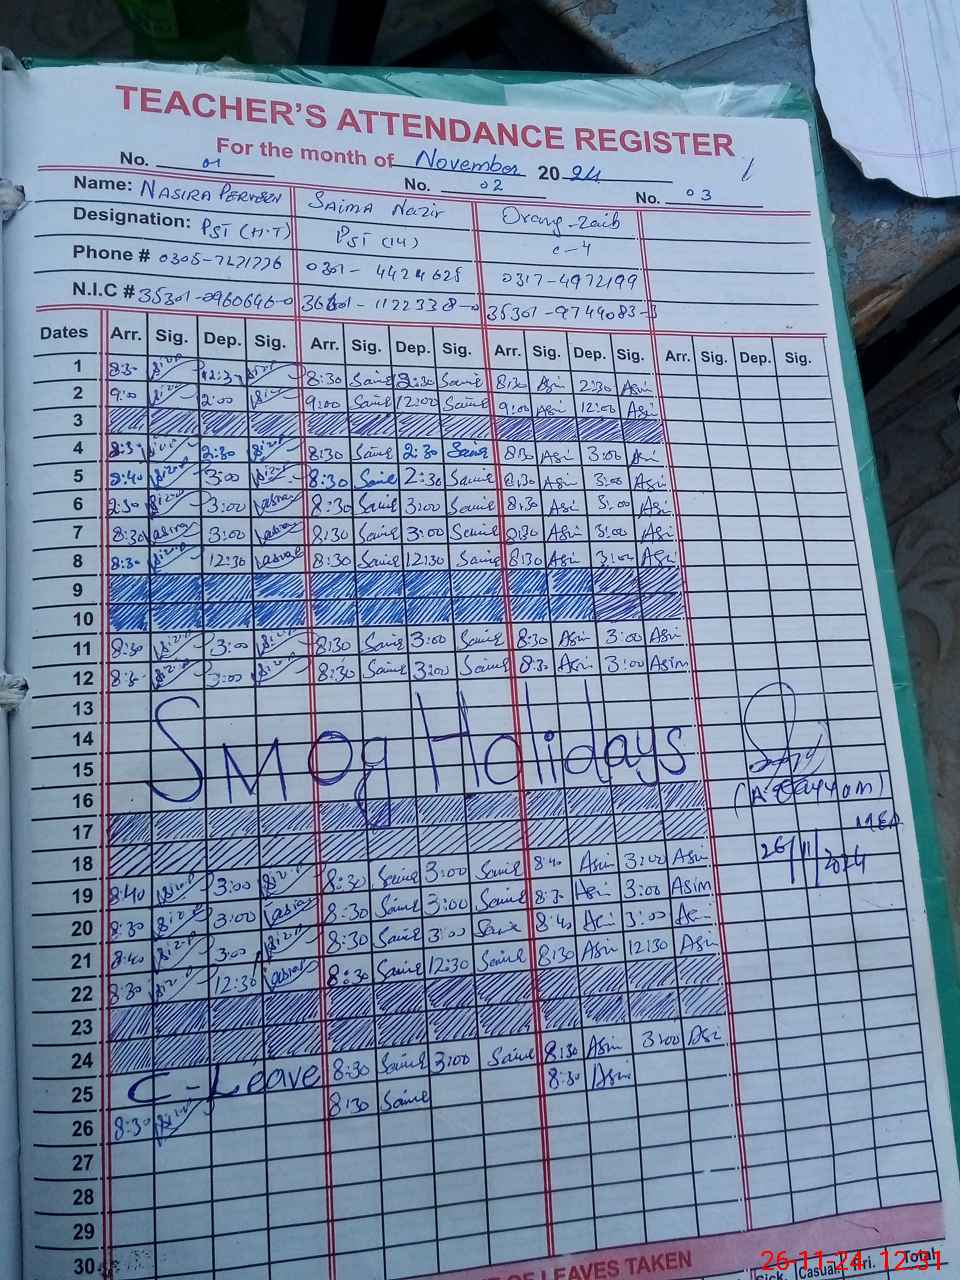 TEACHER'S ATTENDANCE REGISTER
For the month of November 2024
No. 01 No. 02 No. 03
Name: NASIRA PERVEEN Saima Nazir Orang-Zaib
Designation: PST (H.T) PST (14) C-4
Phone # 0305-7471776 0301-4424625 0317-4972199
N.I.C # 35301-0960646-0 35301-9744083-3
Dates Arr. Sig. Dep. Sig. Arr. Sig. Dep. Sig. Arr. Sig. Dep. Sig. Arr. Sig. Dep. Sig.
1 8:30 12:30 8:30 Saima 12:30 Saima 8:30 Asim 2:30 Asim
2 9:00 2:00 9:00 Saima 12:00 Saima 9:00 Asim 12:00 Asim
3
4 8:30 2:30 8:30 Saima 2:30 Saima 8:30 Asim 3:00 Asim
5 8:40 3:00 8:30 Saima 2:30 Saima 8:30 Asim 3:00 Asim
6 3:00 8:30 Saima 3:00 Saima 8:30 Asim 3:00 Asim
7 8:30 3:00 8:30 Saima 3:00 Saima 8:30 Asim 3:00 Asim
8 8:30 12:30 8:30 Saima 12:30 Saima 8:30 Asim 3:00 Asim
9
10
11 8:30 3:00 8:30 Saima 3:00 Saima 8:30 Asim 3:00 Asim
12 8:30 3:00 8:30 Saima 3:00 Saima 8:30 Asim 3:00 Asim
13
14 Smog Holidays
15
16 (A
17 MEA
18 26/11/2024
19 8:40 3:00 8:30 Saima 3:00 Saima 8:40 Asim 3:00 Asim
20 8:30 3:00 8:30 Saima 3:00 Saima 8:30 Asim 3:00 Asim
21 8:40 3:00 8:30 Saima 3:00 Saima 8:40 Asim 3:00 Asim
22 8:30 12:30 8:30 Saima 12:30 Saima 8:30 Asim 12:30 Asim
23
24
25 C-Leave 8:30 Saima 3:00 Saima 8:30 Asim 3:00 Asim
26 8:30 8:30 Saima 8:30 Asim
27
28
29
30
OF LEAVES TAKEN
Sick. Casual Pri. Total
26-11-24, 12:31